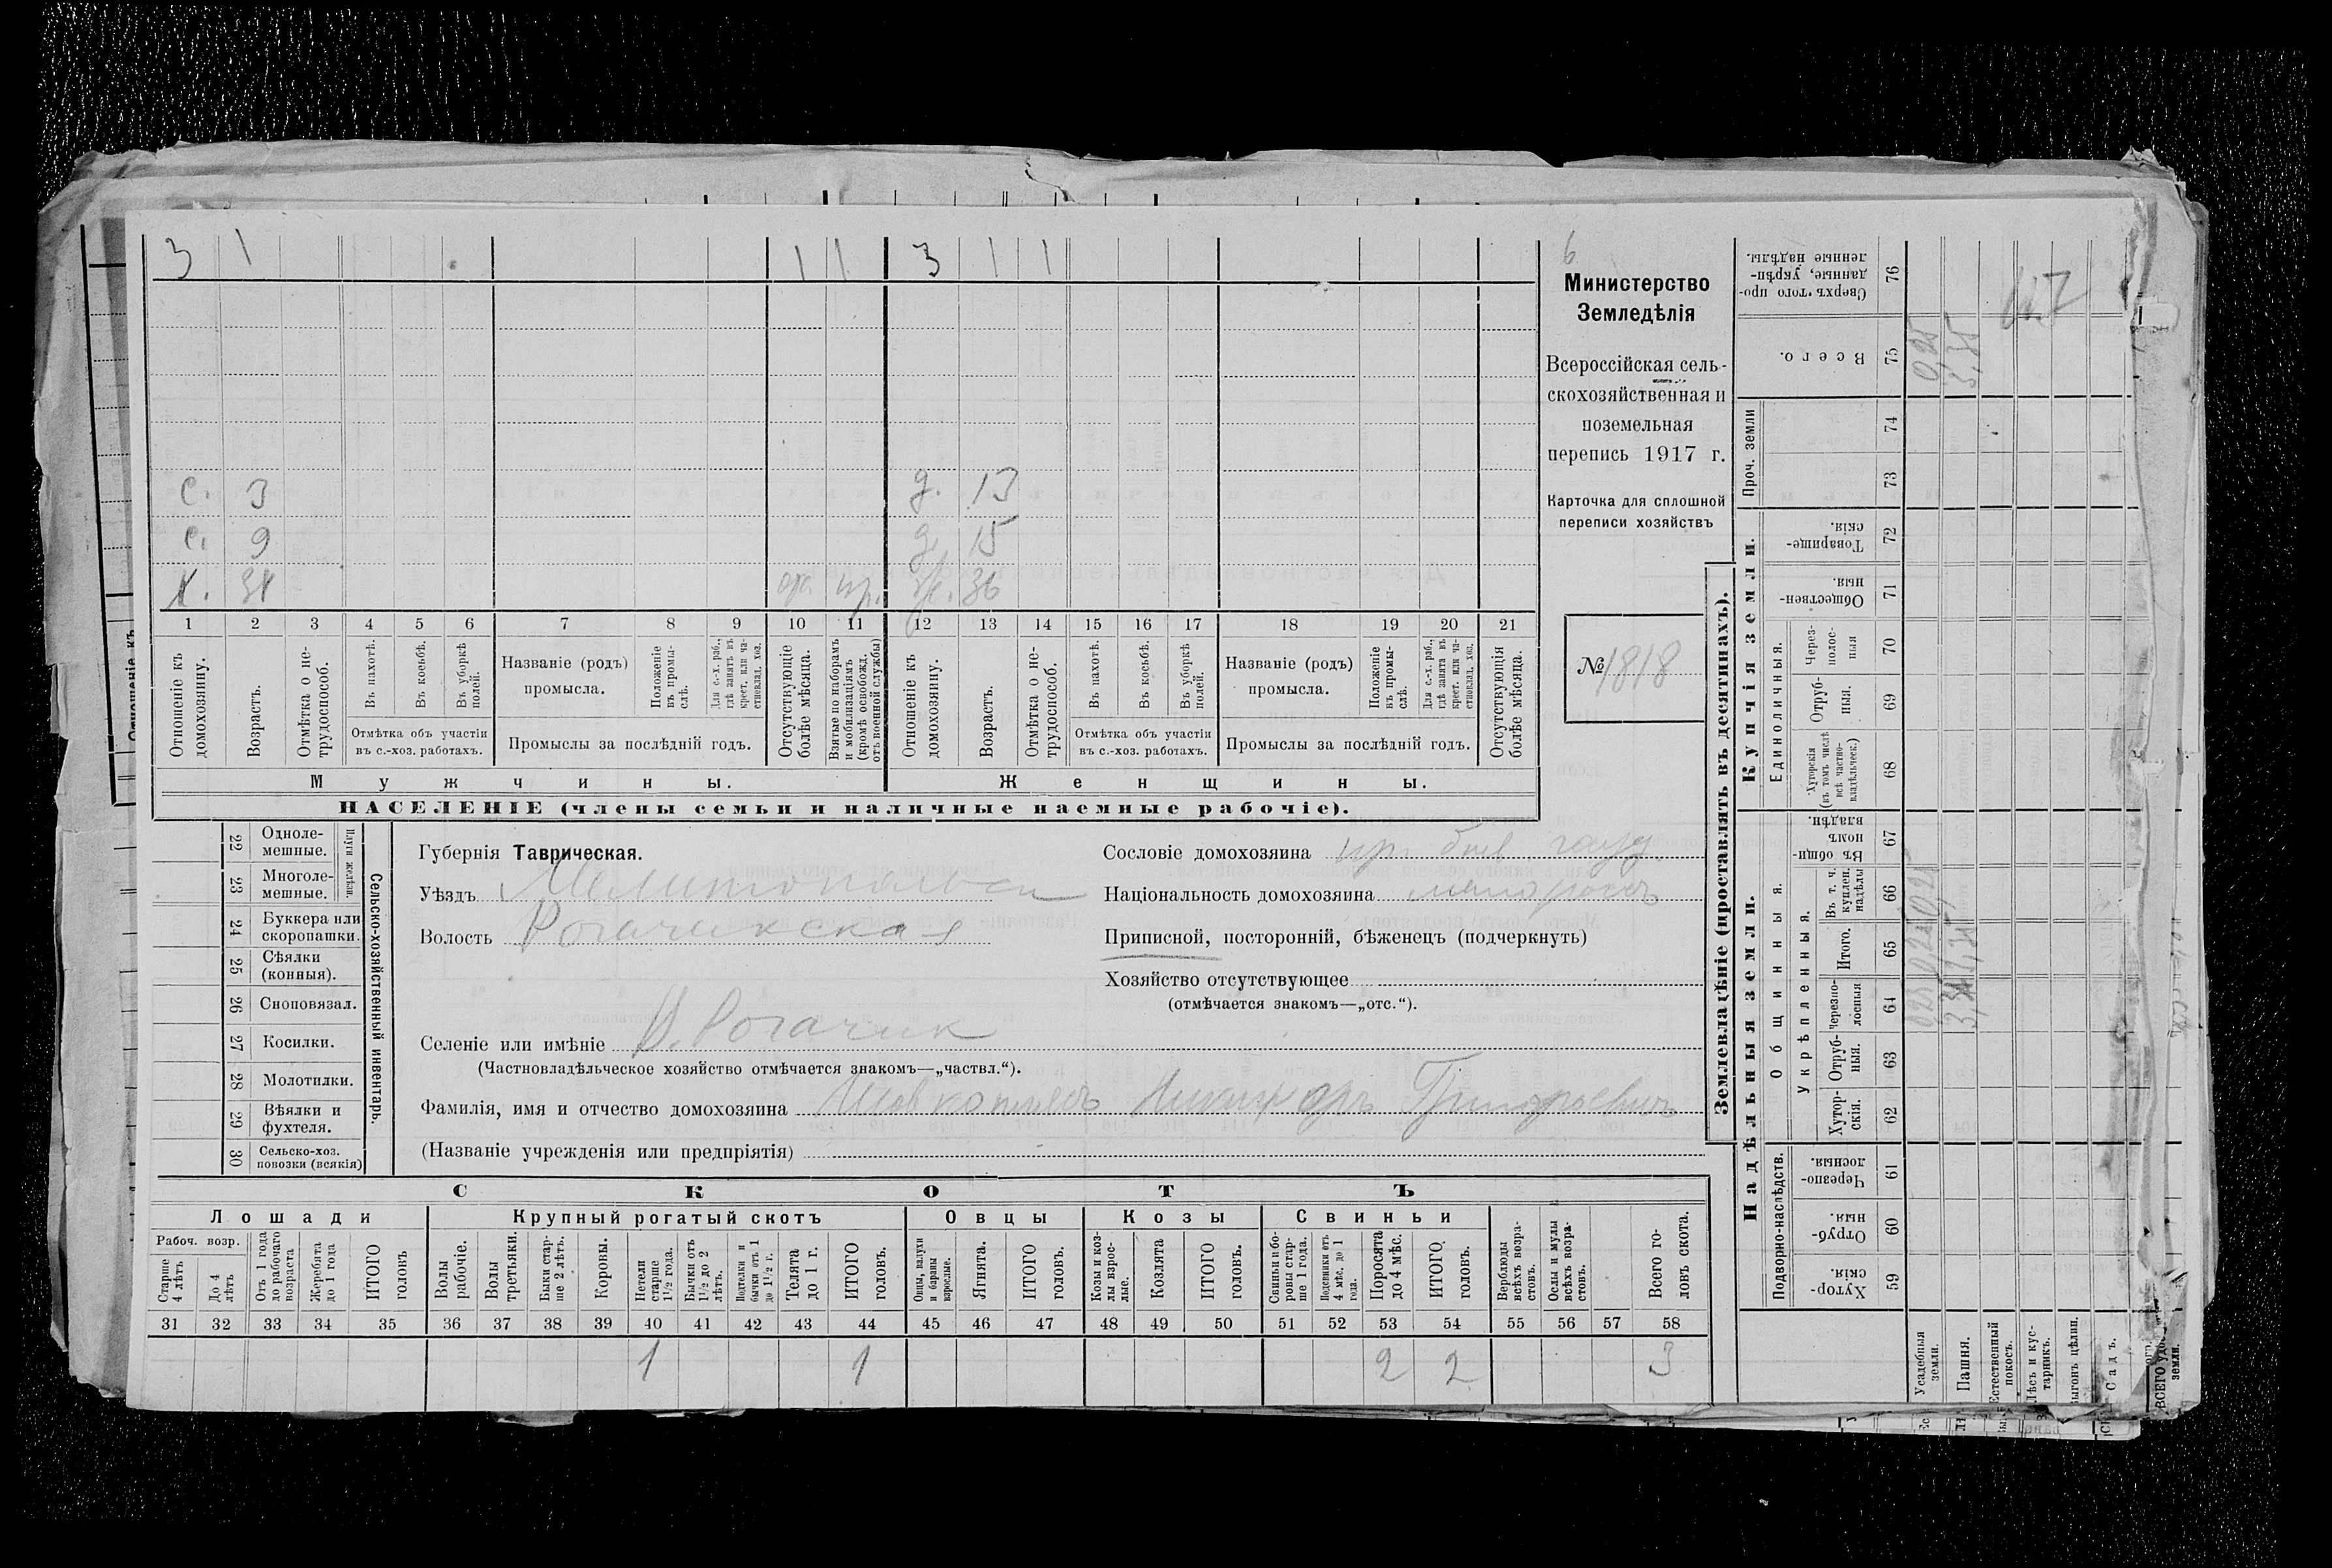 3 1 1 1 3 1 1
с. 3 д. 13
с. 9 д. 15
х. 38 ар. ж. 36
1 2 3 4 5 6 7 8 9 10 11 12 13 14 15 16 17 18 19 20 21
Отношеніе къ домохозяину.
Возрастъ.
Отмѣтка о не-трудоспособ.
Въ пахотѣ.
Въ косьбѣ.
Въ уборкѣ полей.
Отмѣтка объ участіи
въ с.-хоз. работахъ.
Названіе (родъ)
промысла.
Положеніе въ промы-слѣ.
Для с.-х. раб., гдѣ занятъ въ крест. или ча-стновлад. хоз.
Промыслы за послѣдній годъ.
Отсутствующіе болѣе мѣсяца.
Взятые по наборамъ и мобилизаціямъ (кромѣ освобожд. отъ военной службы)
Отношеніе къ домохозяину.
Возрастъ.
Отмѣтка о не-трудоспособ.
Въ пахотѣ.
Въ косьбѣ.
Въ уборкѣ полей.
Отмѣтка объ участіи
въ с.-хоз. работахъ.
Названіе (родъ)
промысла.
Положеніе въ промы-слѣ.
Для с.-х. раб., гдѣ занята въ крест. или ча-стновлад. хоз.
Промыслы за послѣдній годъ.
Отсутствующія болѣе мѣсяца.
Мужчины.
Женщины.
НАСЕЛЕНІЕ (члены семьи и наличные наемные рабочіе).
6
Министерство
Земледѣлія
Всероссійская сель-
скохозяйственная и
поземельная
перепись 1917 г.
Карточка для сплошной
переписи хозяйствъ
№ 1818
22 Одноле-мешные.
23 Многоле-мешные.
Плуги желѣзн.
24 Буккера или скоропашки.
25 Сѣялки (конныя).
26 Сноповязал.
27 Косилки.
28 Молотилки.
29 Вѣялки и фухтеля.
30 Сельско-хоз. повозки (всякія)
Сельско-хозяйственный инвентарь.
Губернія Таврическая.
Уѣздъ Мелитопольск
Волость Рогачикская
Селеніе или имѣніе В. Рогачик
(Частновладѣльческое хозяйство отмѣчается знакомъ—„частвл.“).
Фамилія, имя и отчество домохозяина Шовкоплясъ Никифоръ Григорьевичъ
(Названіе учрежденія или предпріятія)
Сословіе домохозяина кр. быв. госуд.
Національность домохозяина малороссъ
Приписной, посторонній, бѣженецъ (подчеркнуть)
Хозяйство отсутствующее
(отмѣчается знакомъ—„отс.“).
СКОТЪ
Лошади
Крупный рогатый скотъ
Овцы
Козы
Свиньи
Рабоч. возр.
Старше 4 лѣтъ
До 4 лѣтъ
Отъ 1 года до рабочаго возраста
Жеребята до 1 года
ИТОГО головъ
Волы рабочіе.
Волы третьяки.
Быки стар-ше 2 лѣтъ.
Коровы.
Нетели старше 1½ года.
Бычки отъ 1½ до 2 лѣтъ.
Подтелки и бычки отъ 1 до 1½ г.
Телята до 1 г.
ИТОГО головъ.
Овцы, валухи и бараны взрослые.
Ягнята.
ИТОГО головъ.
Козы и коз-лы взрос-лые.
Козлята
ИТОГО головъ.
Свиньи и бо-ровы стар-ше 1 года.
Подсвинки отъ 4 мѣс. до 1 года.
Поросята до 4 мѣс.
ИТОГО головъ.
Верблюды всѣхъ возра-стовъ.
Ослы и мулы всѣхъ возра-стовъ.
Всего го-ловъ скота.
31 32 33 34 35 36 37 38 39 40 41 42 43 44 45 46 47 48 49 50 51 52 53 54 55 56 57 58
1 1 2 2 3
Землевладѣніе (проставлять въ десятинахъ).
Надѣльныя земли.
Купчія земли.
Проч. земли
Подворно-наслѣдств.
Общинныя.
Укрѣпленныя.
Единоличныя.
Хутор-скія. 59
Отруб-ныя. 60
Черезпо-лосныя. 61
Хутор-скія. 62
Отруб-ныя. 63
Черезпо-лосныя 64
Итого. 65
Въ т. ч. куплен. надѣлы 66
Въ общи-номъ владѣн. 67
Хуторскія (въ томъ числѣ всѣ частно-владѣльческ.) 68
Отруб-ныя. 69
Через-полос-ныя 70
Обществен-ныя. 71
Товарище-скія. 72
73
74
Всего. 75
Сверхъ того про-данные, укрѣп-ленные надѣлы. 76
Усадебныя земли. 0,25
Пашня. 3,35
Естественный покосъ.
Лѣсъ и кус-тарникъ.
Выгонъ цѣлин.
Садъ.